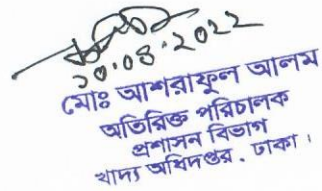 ২০.০৪.২০২২
মোঃ আশরাফুল আলম
অতিরিক্ত পরিচালক
প্রশাসন বিভাগ
খাদ্য অধিদপ্তর, ঢাকা।